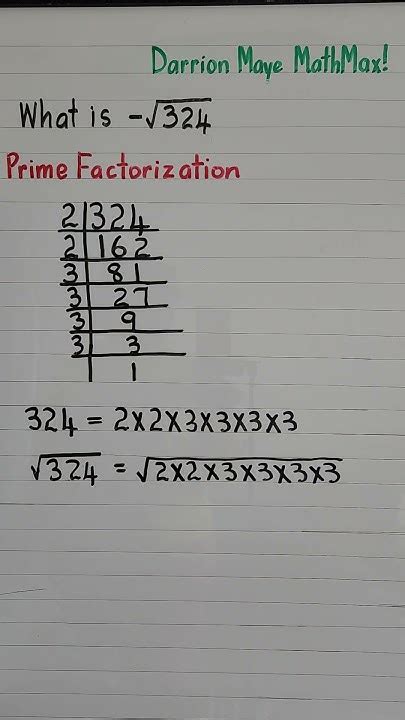 Darrion Maye MathMax!
What is -√324
Prime Factorization
2|324
2|162
3|81
3|27
3|9
3|3
|1
324 = 2x2x3x3x3x3
√324 = √2x2x3x3x3x3